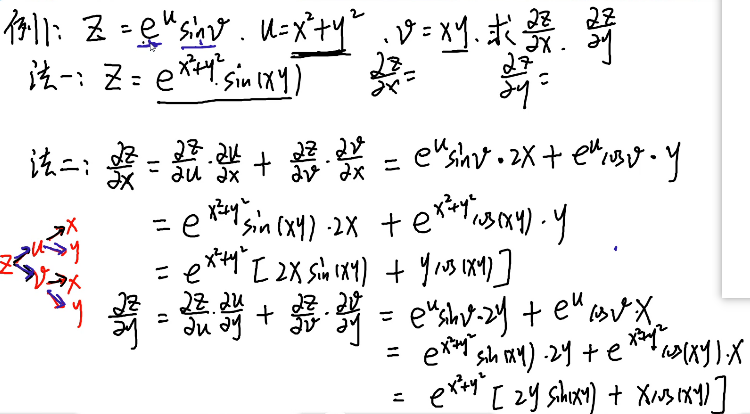 例11: Z = e^u sinv. u=x²+y². v=xy. 求 ∂z/∂x. ∂z/∂y
法一: Z = e^(x²+y²)·sin(xy) ∂z/∂x= ∂z/∂y=
法二: ∂z/∂x = ∂z/∂u·∂u/∂x + ∂z/∂v·∂v/∂x = e^u sinv·2x + e^u cosv·y
= e^(x²+y²) sin(xy)·2x + e^(x²+y²) cos(xy)·y
= e^(x²+y²) [2x sin(xy) + y cos(xy)]
Z u x y v x y
∂z/∂y = ∂z/∂u·∂u/∂y + ∂z/∂v·∂v/∂y = e^u sinv·2y + e^u cosv·x
= e^(x²+y²) sin(xy)·2y + e^(x²+y²) cos(xy)·x
= e^(x²+y²) [2y sin(xy) + x cos(xy)]